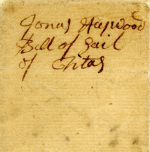 Jonas Haywood
Bill of Sail
of Chitas